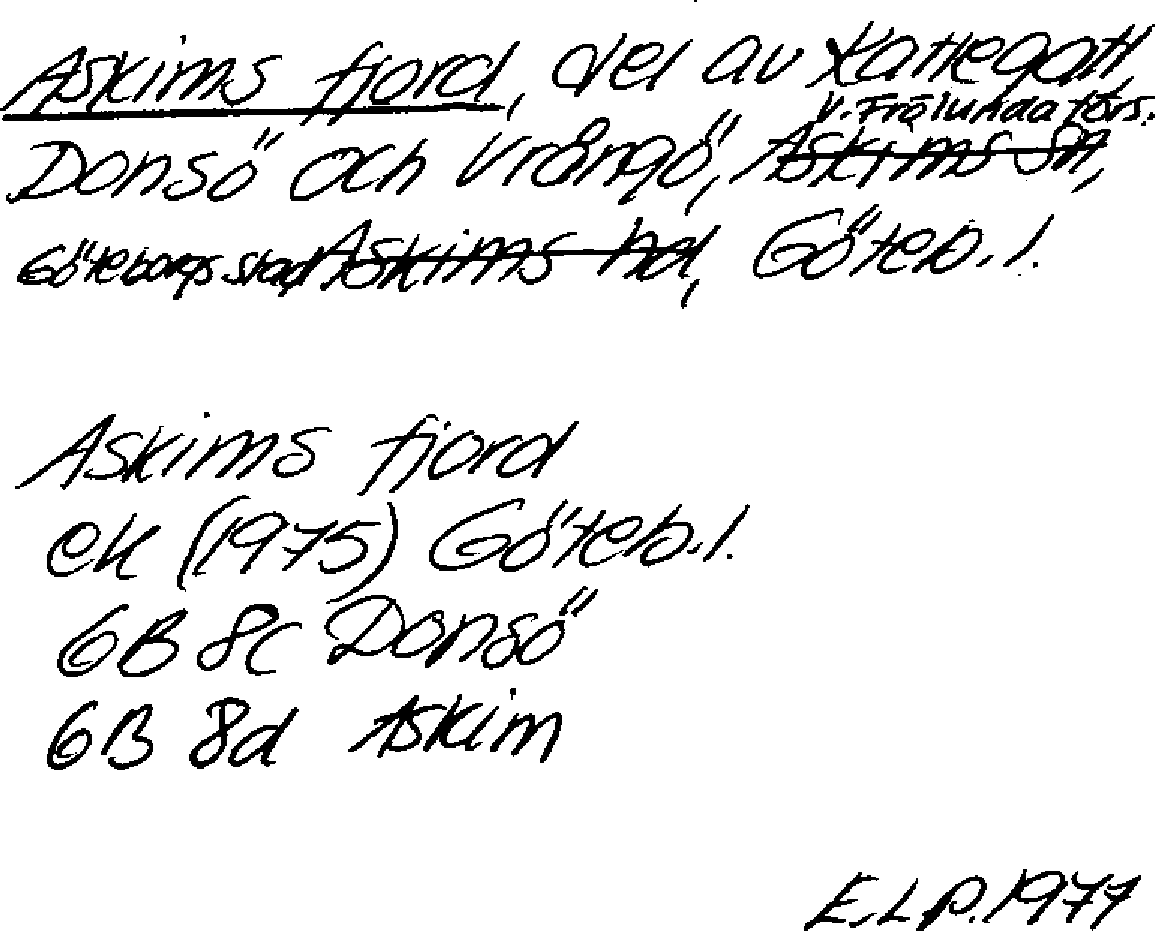 Askims fjord, del av Kattegatt,
V. Frölunda förs.
Donsö och Vrångö, Askims sn,
Göteborgs stad Askims hd, Göteb. l.
Askims fjord
ek (1975) Göteb. l.
6B 8c Donsö
6B 8d Askim
E.L.P. 1977